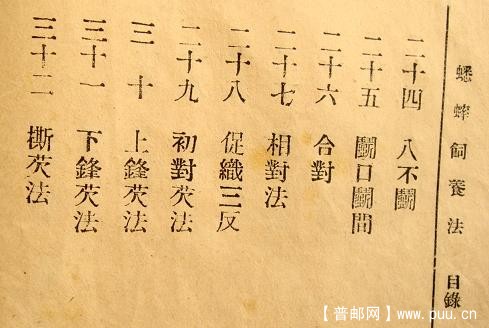 蟋蟀飼養法 目錄
二十四 八不鬬
二十五 鬬口鬬間
二十六 合對
二十七 相對法
二十八 促織三反
二十九 初對芡法
三十 上鋒芡法
三十一 下鋒芡法
三十二 撕芡法
【普邮网】www.puu.cn